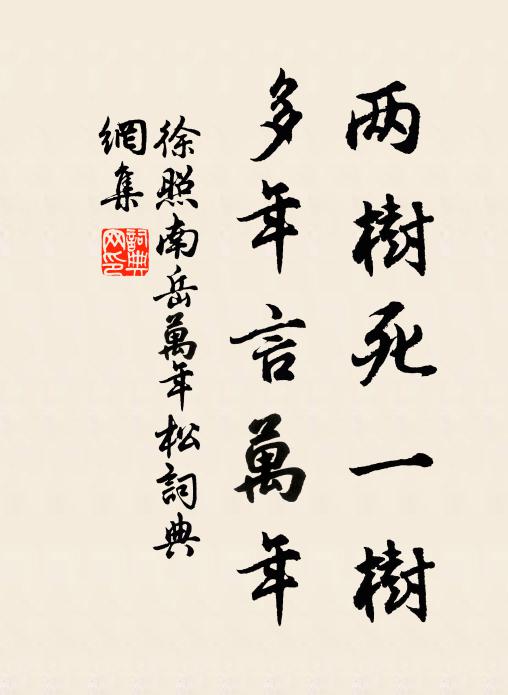 两樹死一樹
多年言萬年
徐照南岳萬年松詞典
網集
詞典網印